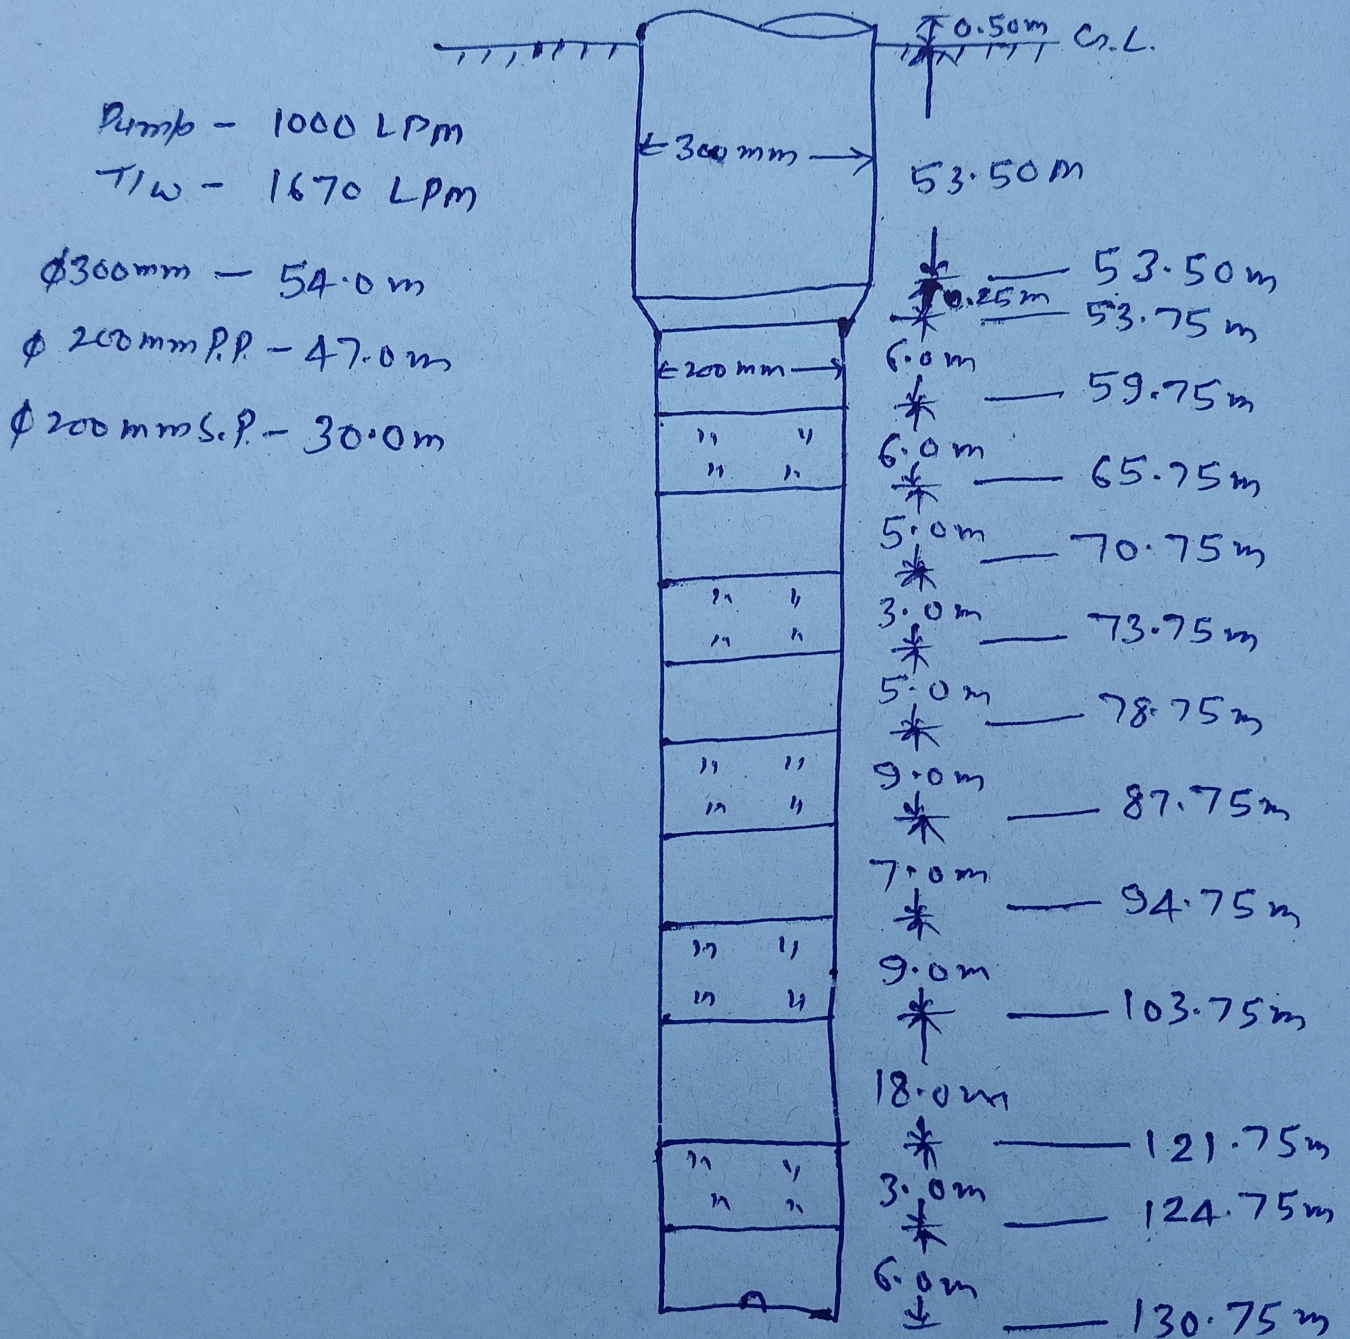 0.50m G.L.
Pump - 1000 LPM
T/W - 1670 LPM
300 mm
53.50m
ϕ300mm - 54.0m
ϕ 200mm P.P. - 47.0m
ϕ 200mm S.P. - 30.0m
53.50m
0.25m 53.75m
200 mm
6.0m
59.75m
6.0m
65.75m
5.0m
70.75m
3.0m
73.75m
5.0m
78.75m
9.0m
87.75m
7.0m
94.75m
9.0m
103.75m
18.0m
121.75m
3.0m
124.75m
6.0m
130.75m